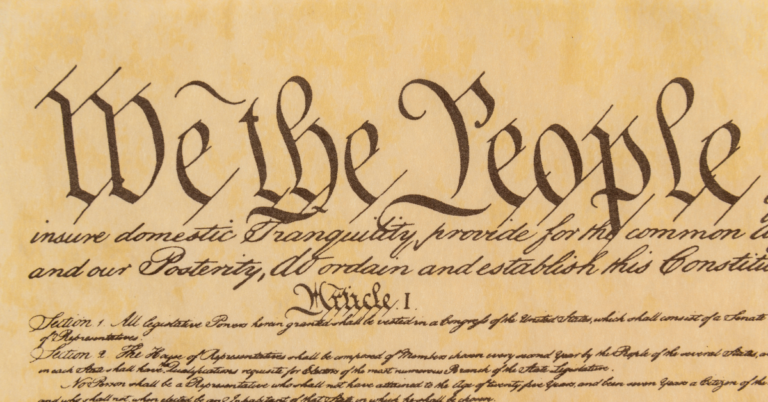 We the People
insure domestic Tranquility, provide for the common
and our Posterity, do ordain and establish this Constitu
Article I.
Section 1. All legislative Powers herein granted shall be vested in a Congress of the United States, which shall consist of a Senate
of Representatives.
Section 2. The House of Representatives shall be composed of Members chosen every second Year by the People of the several States,
in each State shall have Qualifications requisite for Electors of the most numerous Branch of the State Legislature.
No Person shall be a Representative who shall not have attained to the Age of twenty five Years, and been seven Years a Citizen of the
and who shall not, when elected, be an Inhabitant of that State in which he shall be chosen.